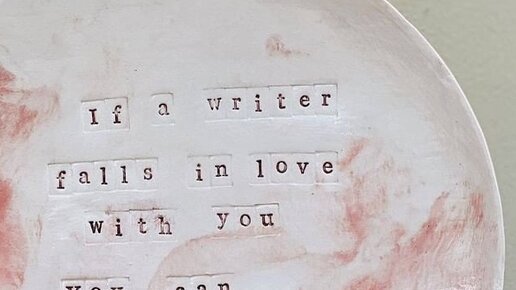 If a writer
falls in love
with you
you can